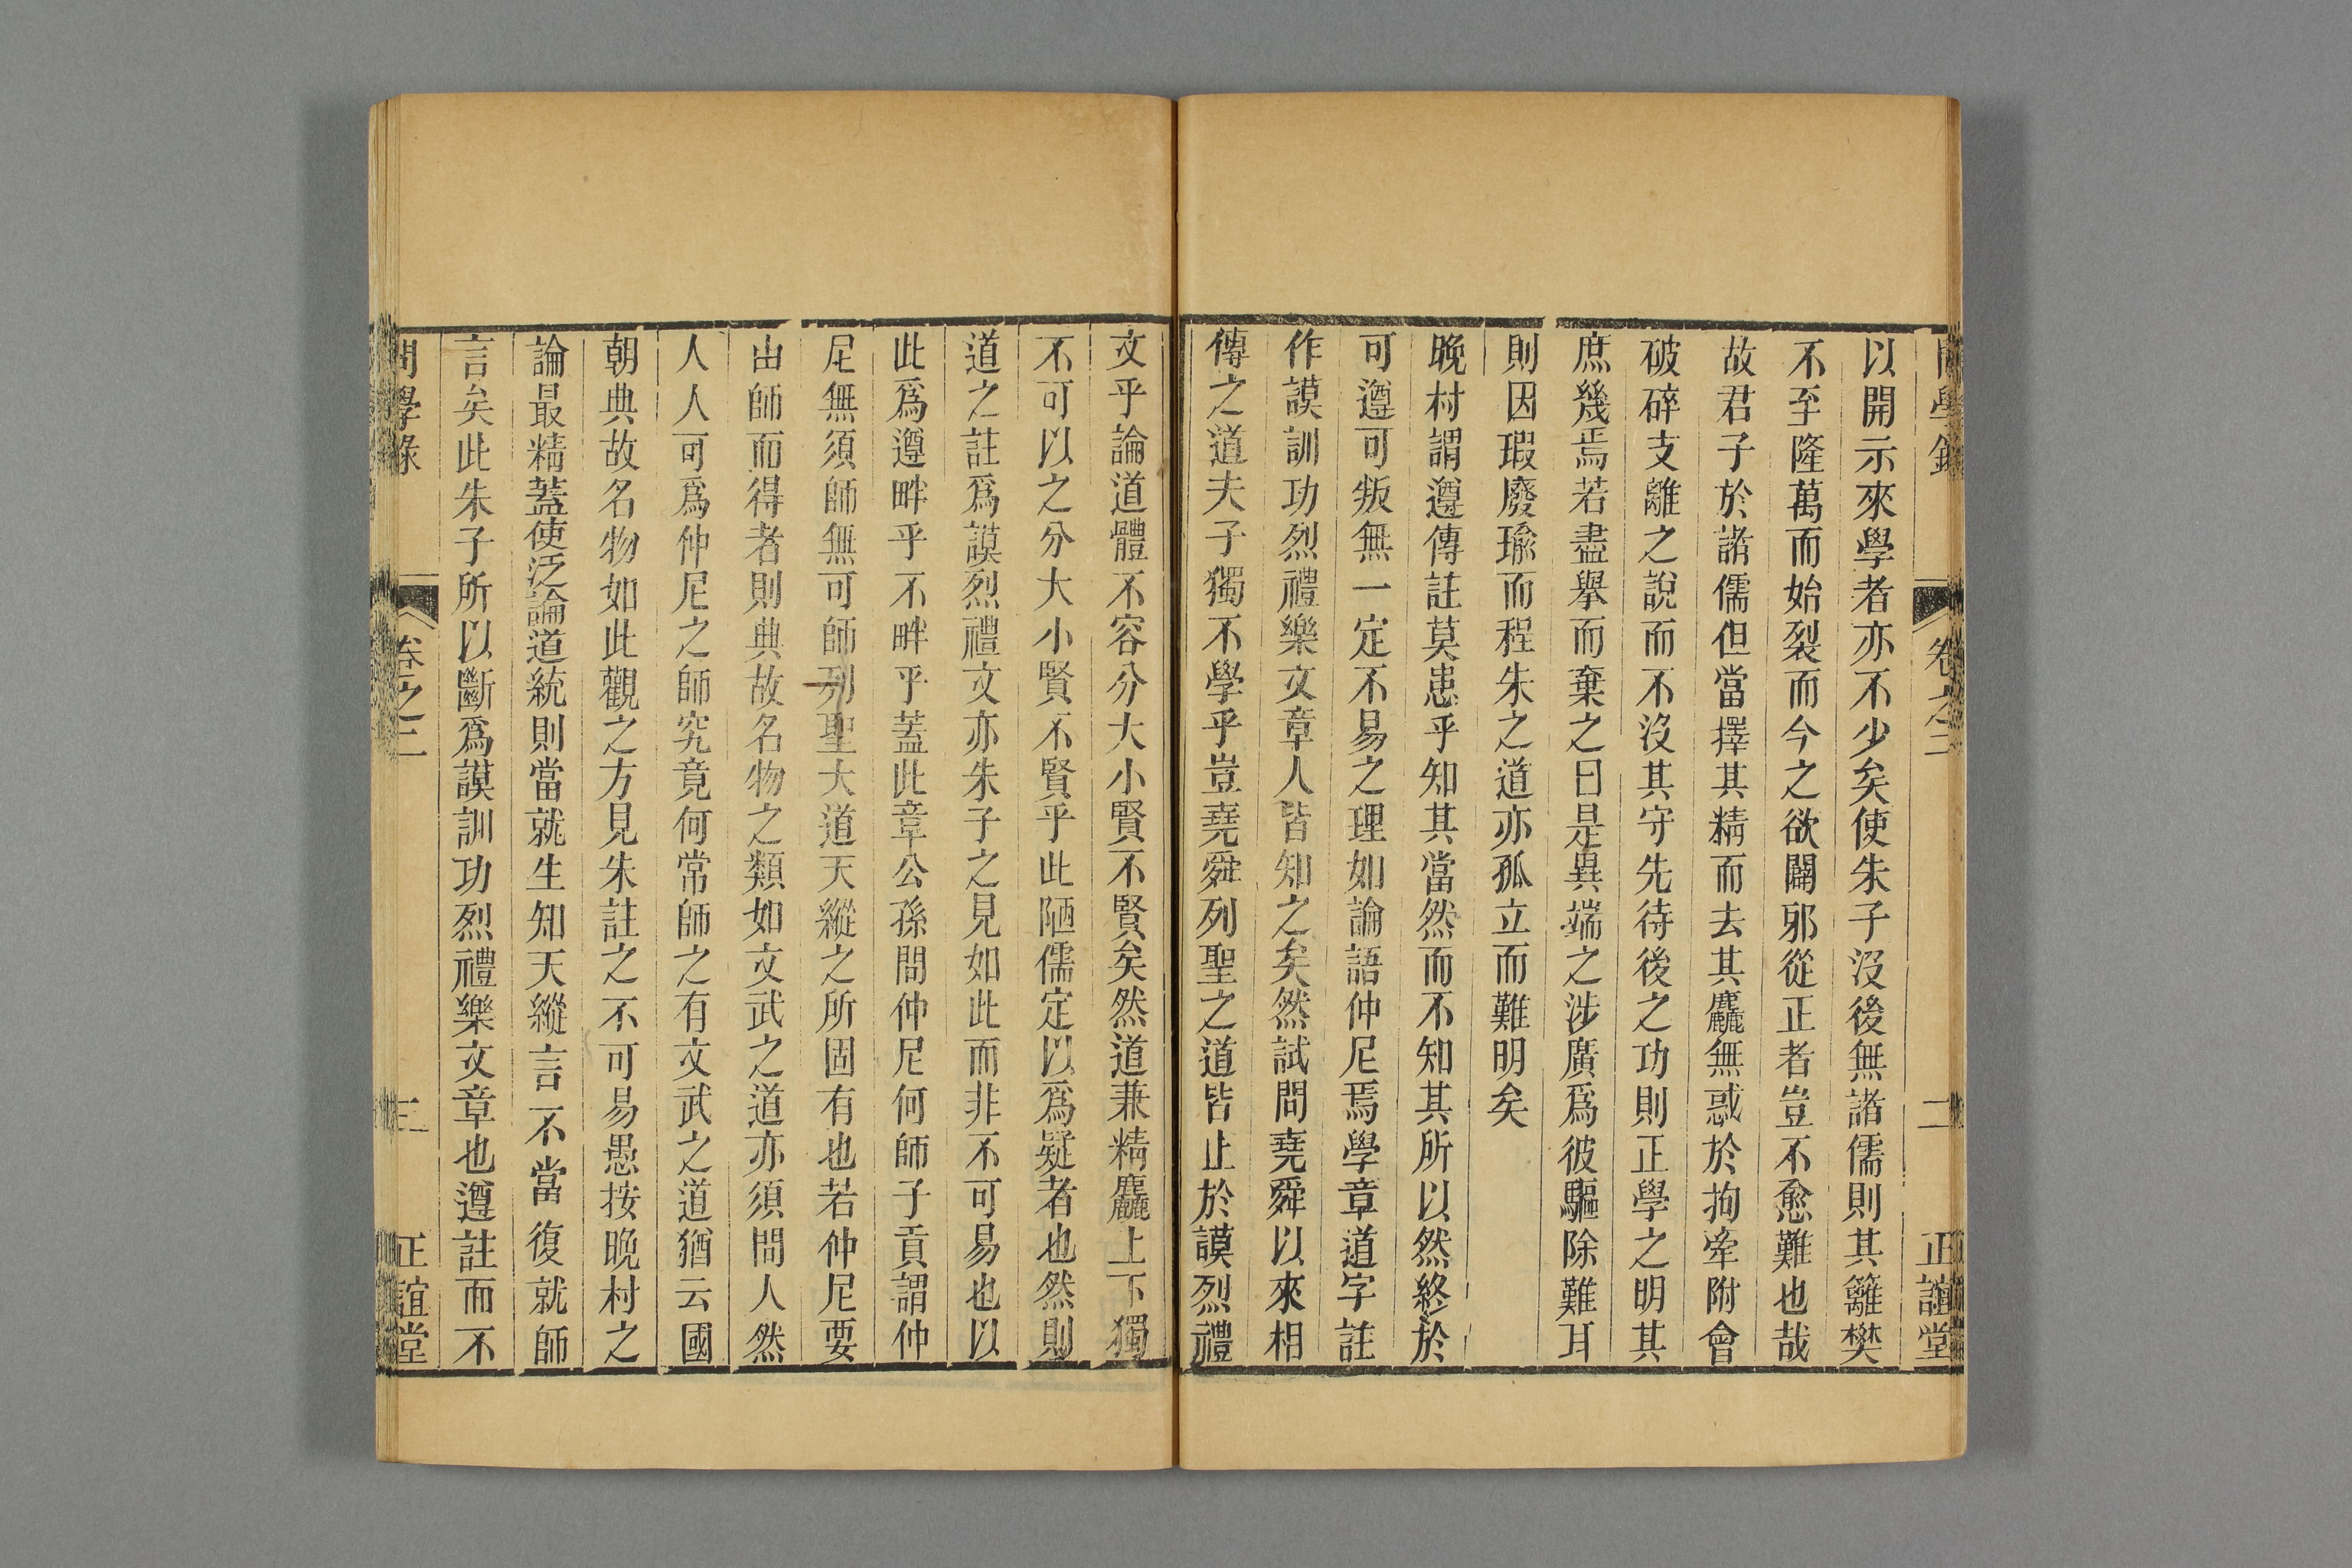 問學錄 卷之三 二 正誼堂
以開示來學者亦不少矣使朱子沒後無諸儒則其籬樊
不至隆萬而始裂而今之欲闢邪從正者豈不愈難也哉
故君子於諸儒但當擇其精而去其麤無惑於拘牽附會
破碎支離之說而不沒其守先待後之功則正學之明其
庶幾焉若盡舉而棄之曰是異端之涉廣爲彼驅除難耳
則因瑕廢瑜而程朱之道亦孤立而難明矣
晚村謂遵傳註莫患乎知其當然而不知其所以然終於
可遵可叛無一定不易之理如論語仲尼焉學章道字註
作謨訓功烈禮樂文章人皆知之矣然試問堯舜以來相
傳之道夫子獨不學乎豈堯舜列聖之道皆止於謨烈禮
文乎論道體不容分大小賢不賢矣然道兼精麤上下獨
不可以之分大小賢不賢乎此陋儒定以爲疑者也然則
道之註爲謨烈禮文亦朱子之見如此而非不可易也以
此爲遵畔乎不畔乎蓋此章公孫問仲尼何師子貢謂仲
尼無須師無可師列聖大道天縱之所固有也若仲尼要
由師而得者則典故名物之類如文武之道亦須問人然
人人可爲仲尼之師究竟何常師之有文武之道猶云國
朝典故名物如此觀之方見朱註之不可易愚按晚村之
論最精蓋使泛論道統則當就生知天縱言不當復就師
言矣此朱子所以斷爲謨訓功烈禮樂文章也遵註而不
問學錄 卷之三 三 正誼堂